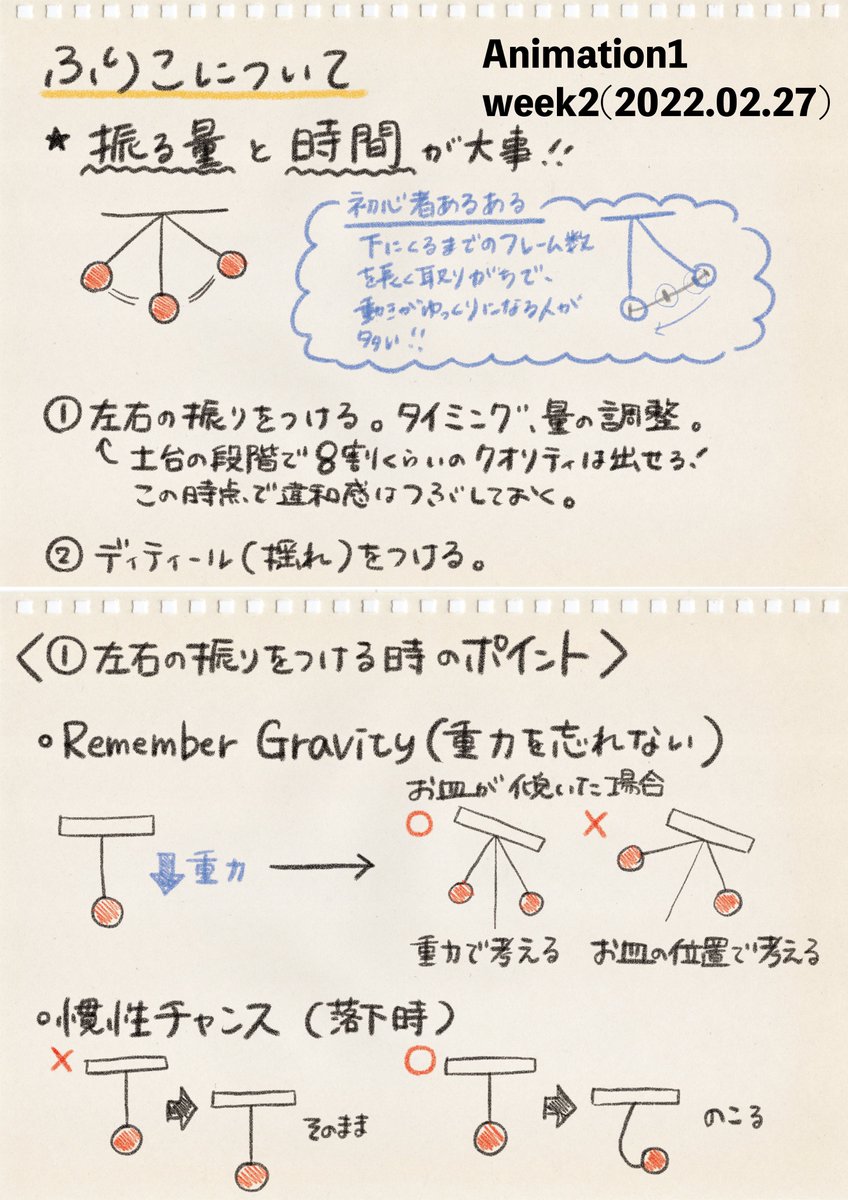 ふりこについて
Animation1
week2(2022.02.27)
★ 振る量と時間が大事!!
初心者あるある
下にくるまでのフレーム数
を長く取りがちで、
動きがゆっくりになる人が
多い!!
① 左右の振りをつける。タイミング、量の調整。
土台の段階で8割くらいのクオリティは出せる!
この時点で違和感はつぶしておく。
② ディティール(揺れ)をつける。
<①左右の振りをつける時のポイント>
Remember Gravity(重力を忘れない)
お皿が傾いた場合
○ ×
重力
重力で考える お皿の位置で考える
慣性チャンス(落下時)
× ○
そのまま のこる